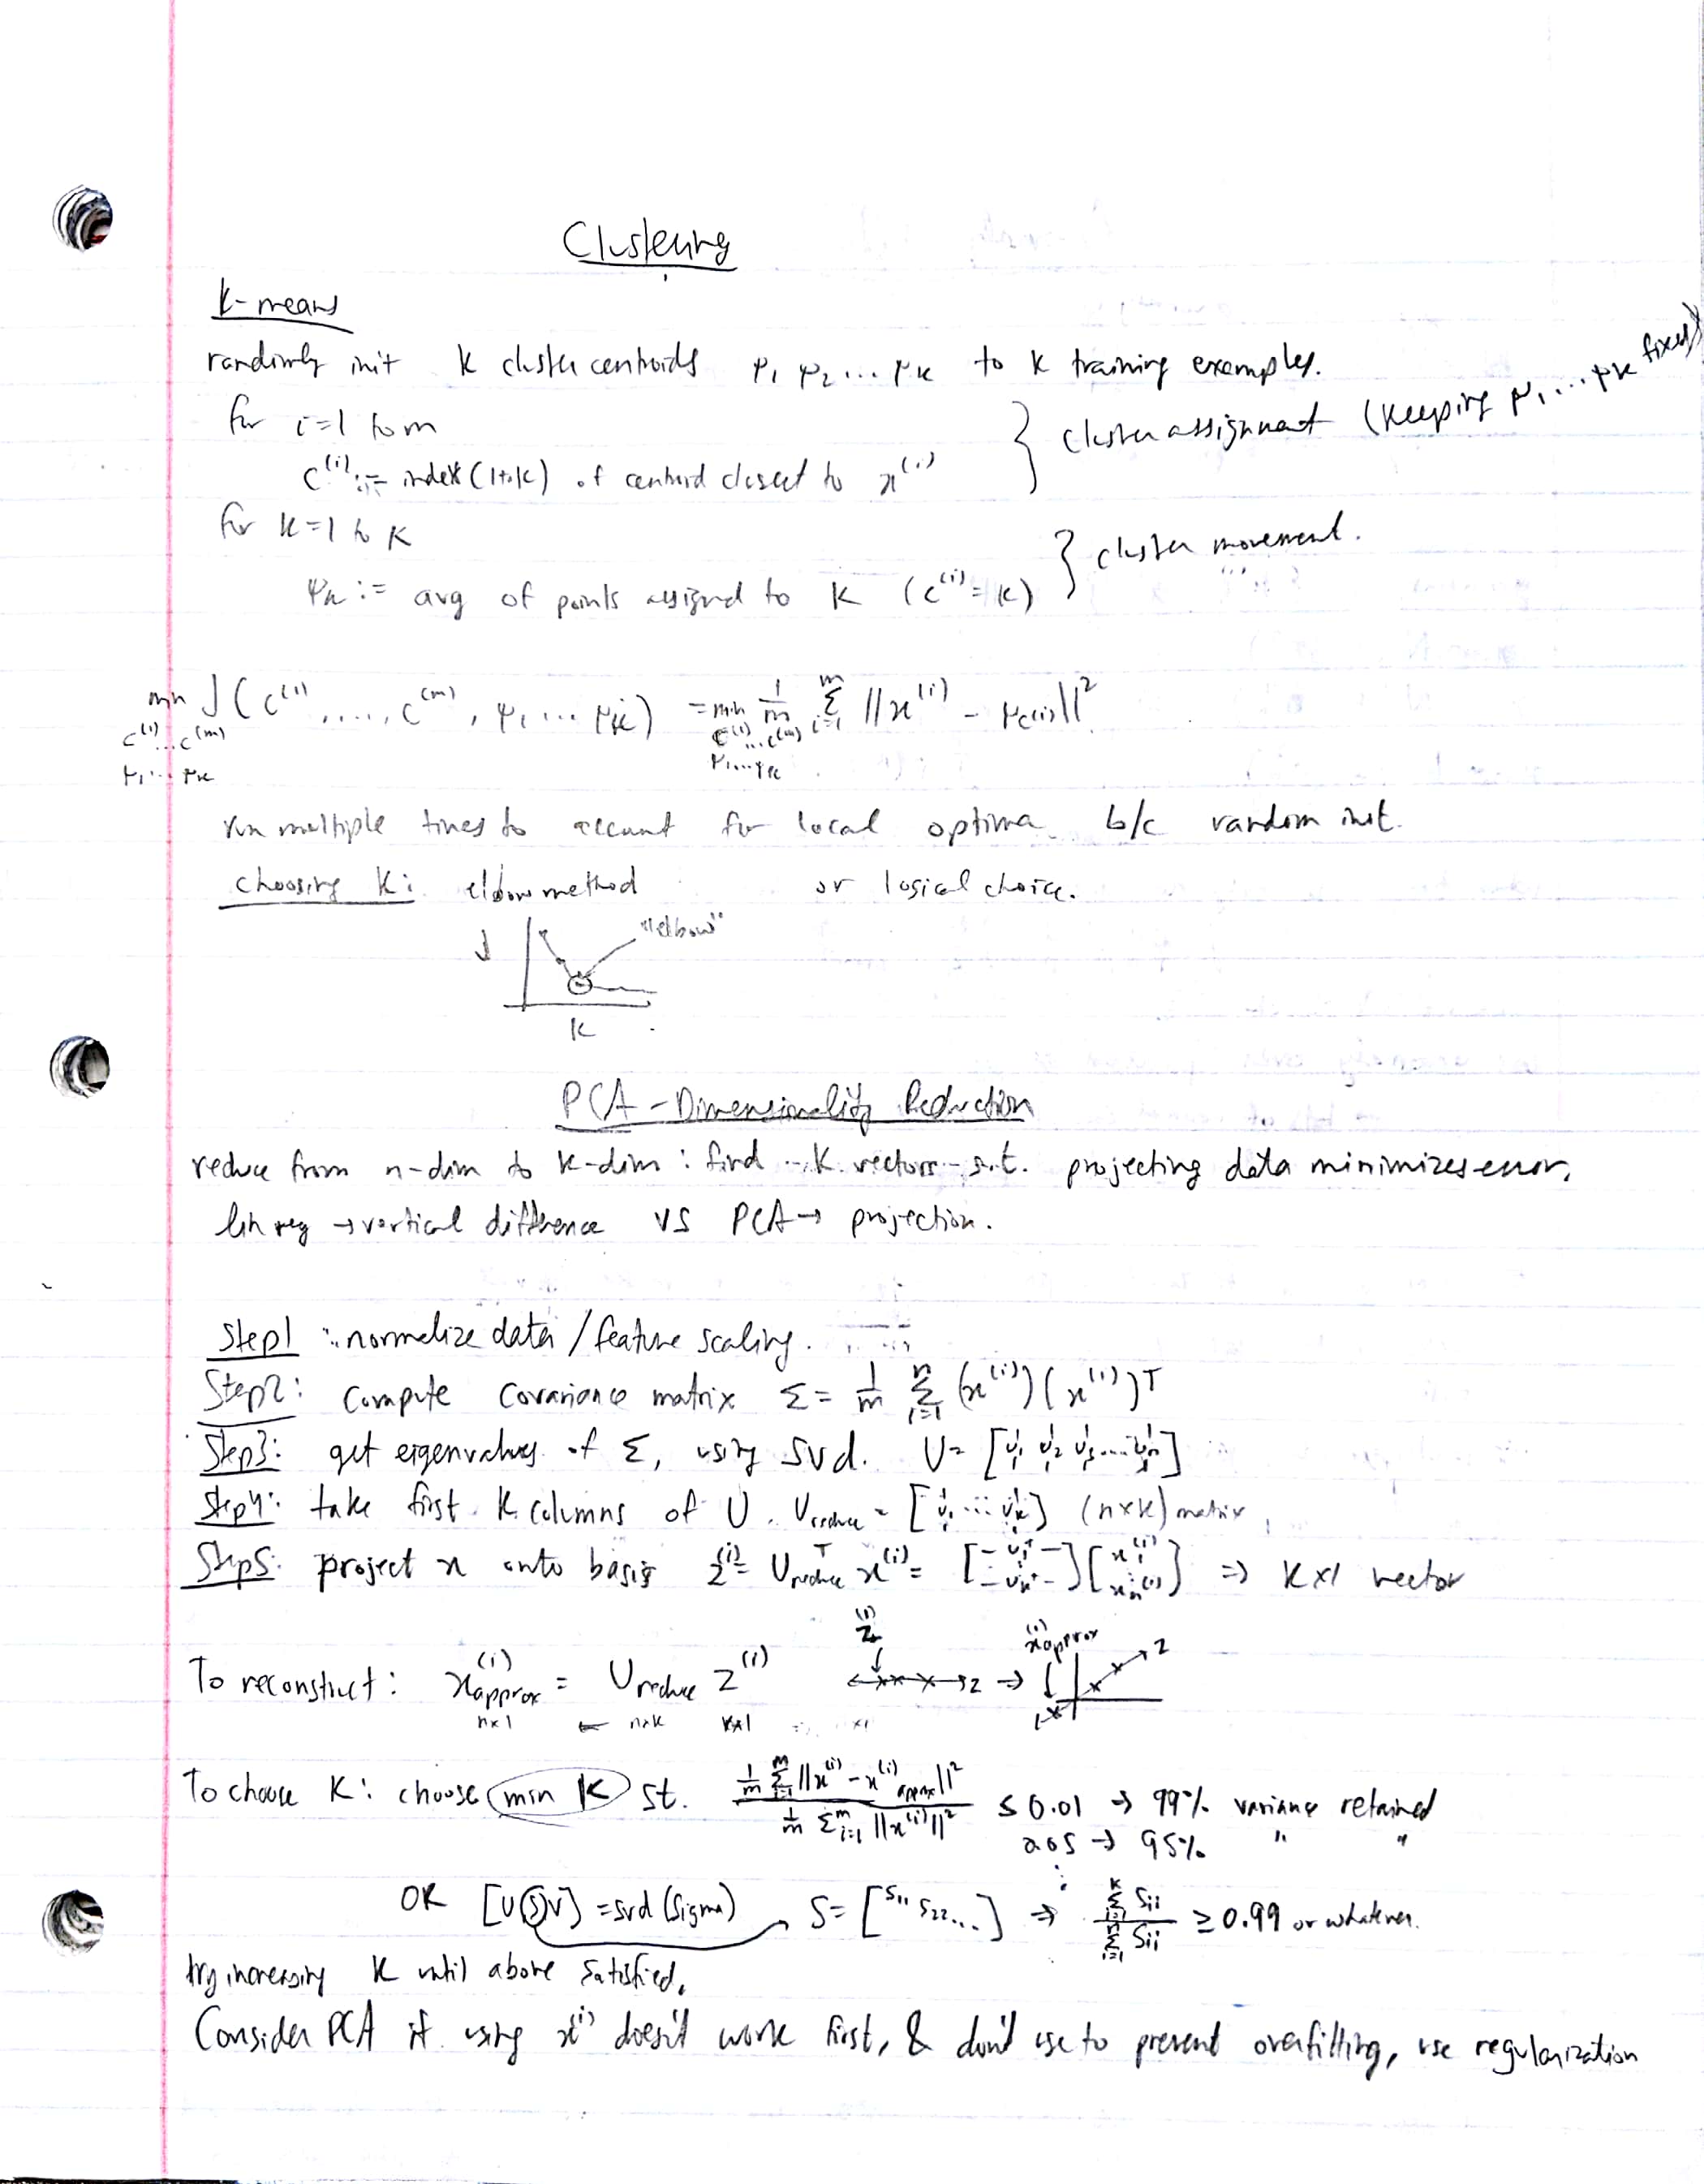 Clustering
K-means
randomly init K cluster centroids μ₁ μ₂ ... μₖ to K training examples.
for i=1 to m } cluster assignment (keeping μ₁ ... μₖ fixed)
c⁽ⁱ⁾ := index (1 to K) of centroid closest to x⁽ⁱ⁾
for k=1 to K } cluster movement.
μₖ := avg of points assigned to k (c⁽ⁱ⁾ = k)
min J(c⁽¹⁾, ...., c⁽ᵐ⁾, μ₁ ... μₖ) = min 1/m Σᵢ₌₁ᵐ ||x⁽ⁱ⁾ - μ_c(i)||²
c⁽¹⁾...c⁽ᵐ⁾ c⁽¹⁾...c⁽ᵐ⁾
μ₁...μₖ μ₁...μₖ
run multiple times to account for local optima b/c random init.
choosing K: elbow method or logical choice.
"elbow"
J
K
PCA - Dimensionality Reduction
reduce from n-dim to k-dim : find K vectors s.t. projecting data minimizes error,
lin reg → vertical difference VS PCA → projection.
Step1 : normalize data / feature scaling.
Step2: compute covariance matrix Σ = 1/m Σᵢ₌₁ⁿ (x⁽ⁱ⁾)(x⁽ⁱ⁾)ᵀ
Step3: get eigenvalues of Σ, using svd. U = [u₁ u₂ u₃ .... uₙ]
Step4: take first K columns of U. U_reduce = [u₁ ... uₖ] (n×k) matrix
Step5: project x onto basis z⁽ⁱ⁾ = U_reduceᵀ x⁽ⁱ⁾ = [-u₁ᵀ- ⋮ -uₖᵀ-][x₁⁽ⁱ⁾ ⋮ xₙ⁽ⁱ⁾] ⇒ K×1 vector
z⁽¹⁾ x⁽¹⁾approx z
To reconstruct : x⁽ⁱ⁾approx = U_reduce z⁽ⁱ⁾ z →
n×1 ← n×k k×1
To choose K: choose min K st. 1/m Σᵢ₌₁ᵐ ||x⁽ⁱ⁾ - x⁽ⁱ⁾approx||² / 1/m Σᵢ₌₁ᵐ ||x⁽ⁱ⁾||² ≤ 0.01 → 99% variance retained
0.05 → 95% " "
OR [U S V] = svd(Sigma) S = [S₁₁ S₂₂...] ⇒ Σᵢ₌₁ᵏ Sii / Σᵢ₌₁ⁿ Sii ≥ 0.99 or whatever.
try increasing K until above satisfied.
Consider PCA if using x⁽ⁱ⁾ doesn't work first, & don't use to prevent overfitting, use regularization